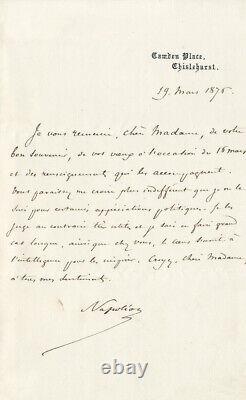 Camden Place,
Chislehurst.
19 Mars 1876
Je vous remercie, chère Madame, de votre
bon souvenir, de vos vœux à l'occasion du 16 mars
et des renseignements qui les accompagnent.
Vous paraissez me croire plus indifférent que je ne le
suis pour certaines appréciations politiques. Je les
juge au contraire très utiles et je sais en faire grand
cas lorsque, ainsi que chez vous, le cœur s'unit à
l'intelligence pour les inspirer. Croyez, chère Madame,
à tous mes sentiments.
Napoléon
© eBay